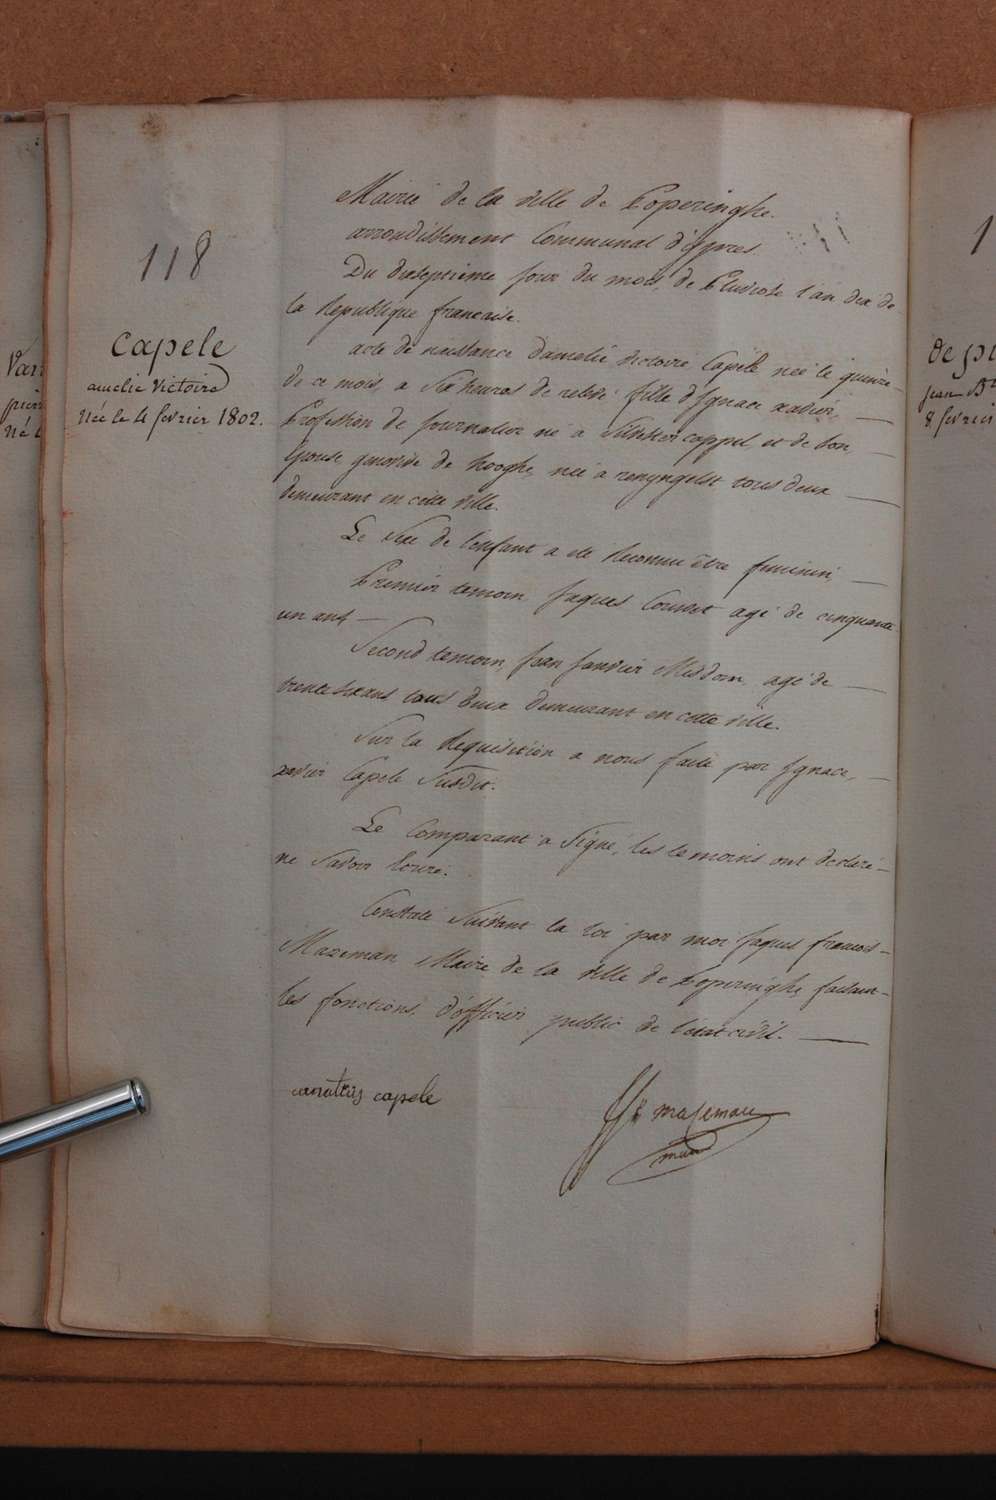 118
capele
amelie victoire
née le 4 fevrier 1802.
Mairie de la ville de Poperinghe.
arrondissement Communal d'Ypres.
Du dixseptieme jour du mois de Pluviose l'an dix de
la Republique francaise.
acte de naissance d'amelie victoire Capele née le quinze
de ce mois a six heures de relevé. fille d'Ignace xavier,
Profession de journalier né a et de son
Epouse genovive de hooghe, née a renyngelst tous deux
demeurant en cette ville.
Le sexe de l'enfant a eté reconnu être feminin,
Premier temoin Jaques agé de cinquante
un ans
Second temoin, jean Misdom agé de
trente six ans tous deux demeurant en cette ville.
Sur la requisition a nous faite par Ignace,
xavier Capele susdit.
Le Comparant a signé, les temoins ont declaré
ne savoir
Constaté suivant la loi par moi Jaques francois
Mazeman, Maire de la ville de Poperinghe, faisant
les fonctions d'officier public de l'etat civil.
capele
mazeman
Van
pier
né l
1
de p
jean Bt
8 fevrier